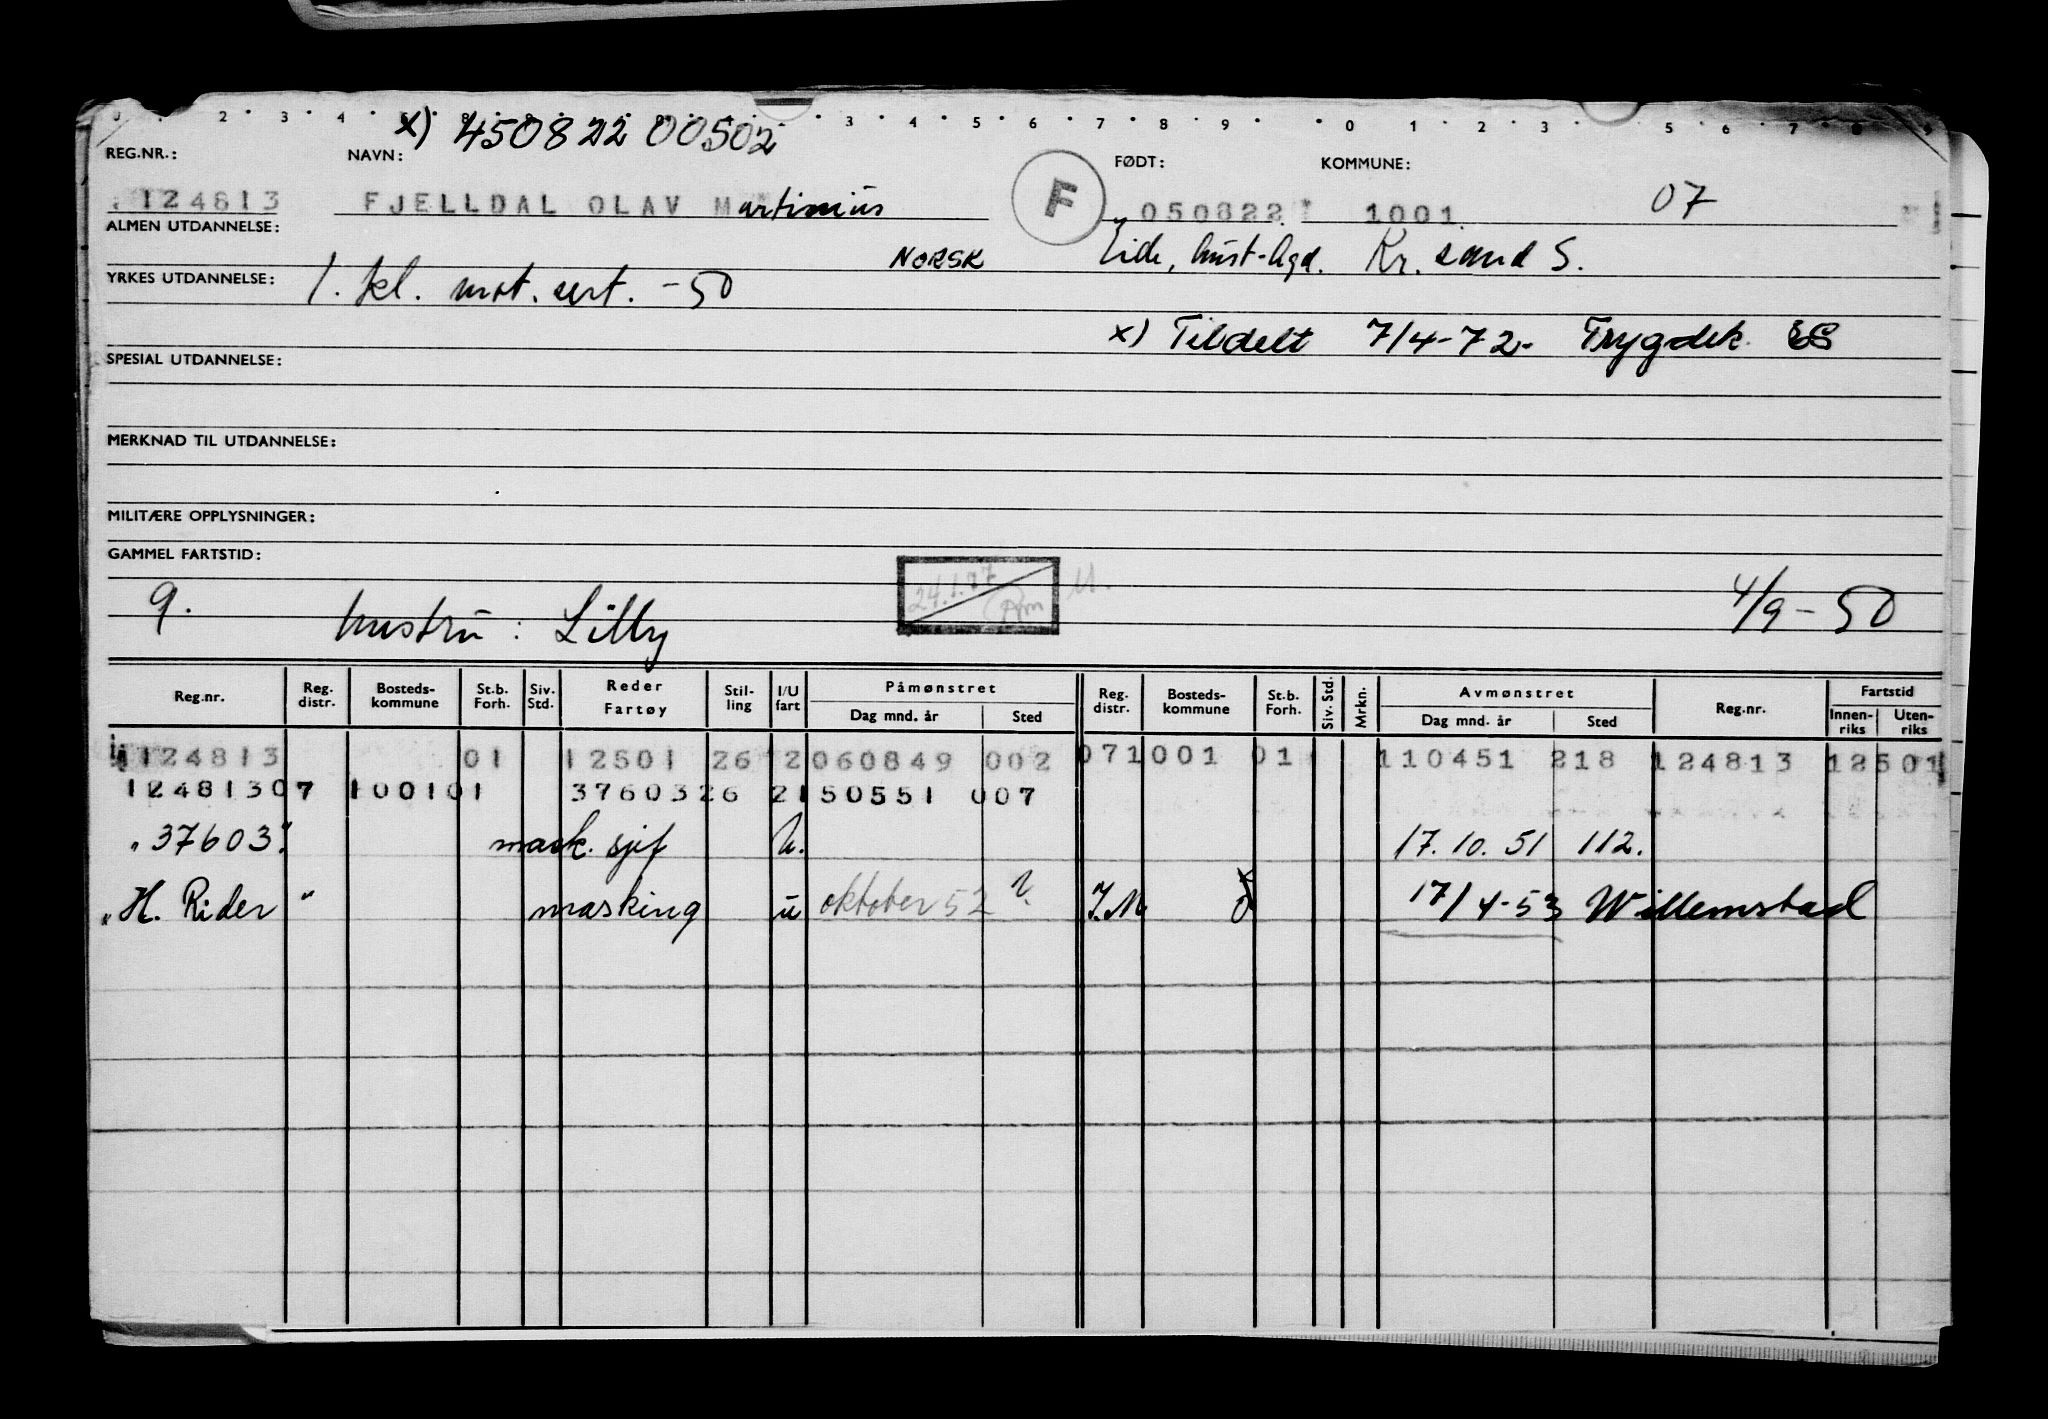 x) 450822 00502
REG.NR.: NAVN: FØDT: KOMMUNE:
124813 FJELLDAL OLAV Martinius F 050822 1001 07
ALMEN UTDANNELSE:
NORSK Eide, Aust-Agd. Kr. sand S.
YRKES UTDANNELSE: 1. kl. mot. sert. - 50
x) Tildelt 7/4-72. Trygdek
SPESIAL UTDANNELSE:
MERKNAD TIL UTDANNELSE:
MILITÆRE OPPLYSNINGER:
GAMMEL FARTSTID:
24.1.77
9. hustru: Lilly 4/9-50
Reg.nr. Reg. distr. Bosteds-kommune St.b. Forh. Siv. Std. Reder Fartøy Stil-ling I/U fart Påmønstret Dag mnd. år Sted Reg. distr. Bosteds-kommune St.b. Forh. Siv. Std. Mrkn. Avmønstret Dag mnd. år Sted Reg.nr. Fartstid Innen-riks Uten-riks
124813 01 12501 26 2 060849 002 07 1001 01 110451 218 124813 12501
124813 07 1001 01 37603 26 2 150551 007
"37603" mask. sjef u. 17.10.51 112.
"H. Rider" masking u oktober 52 ? J.M 17/4-53 Willemstad